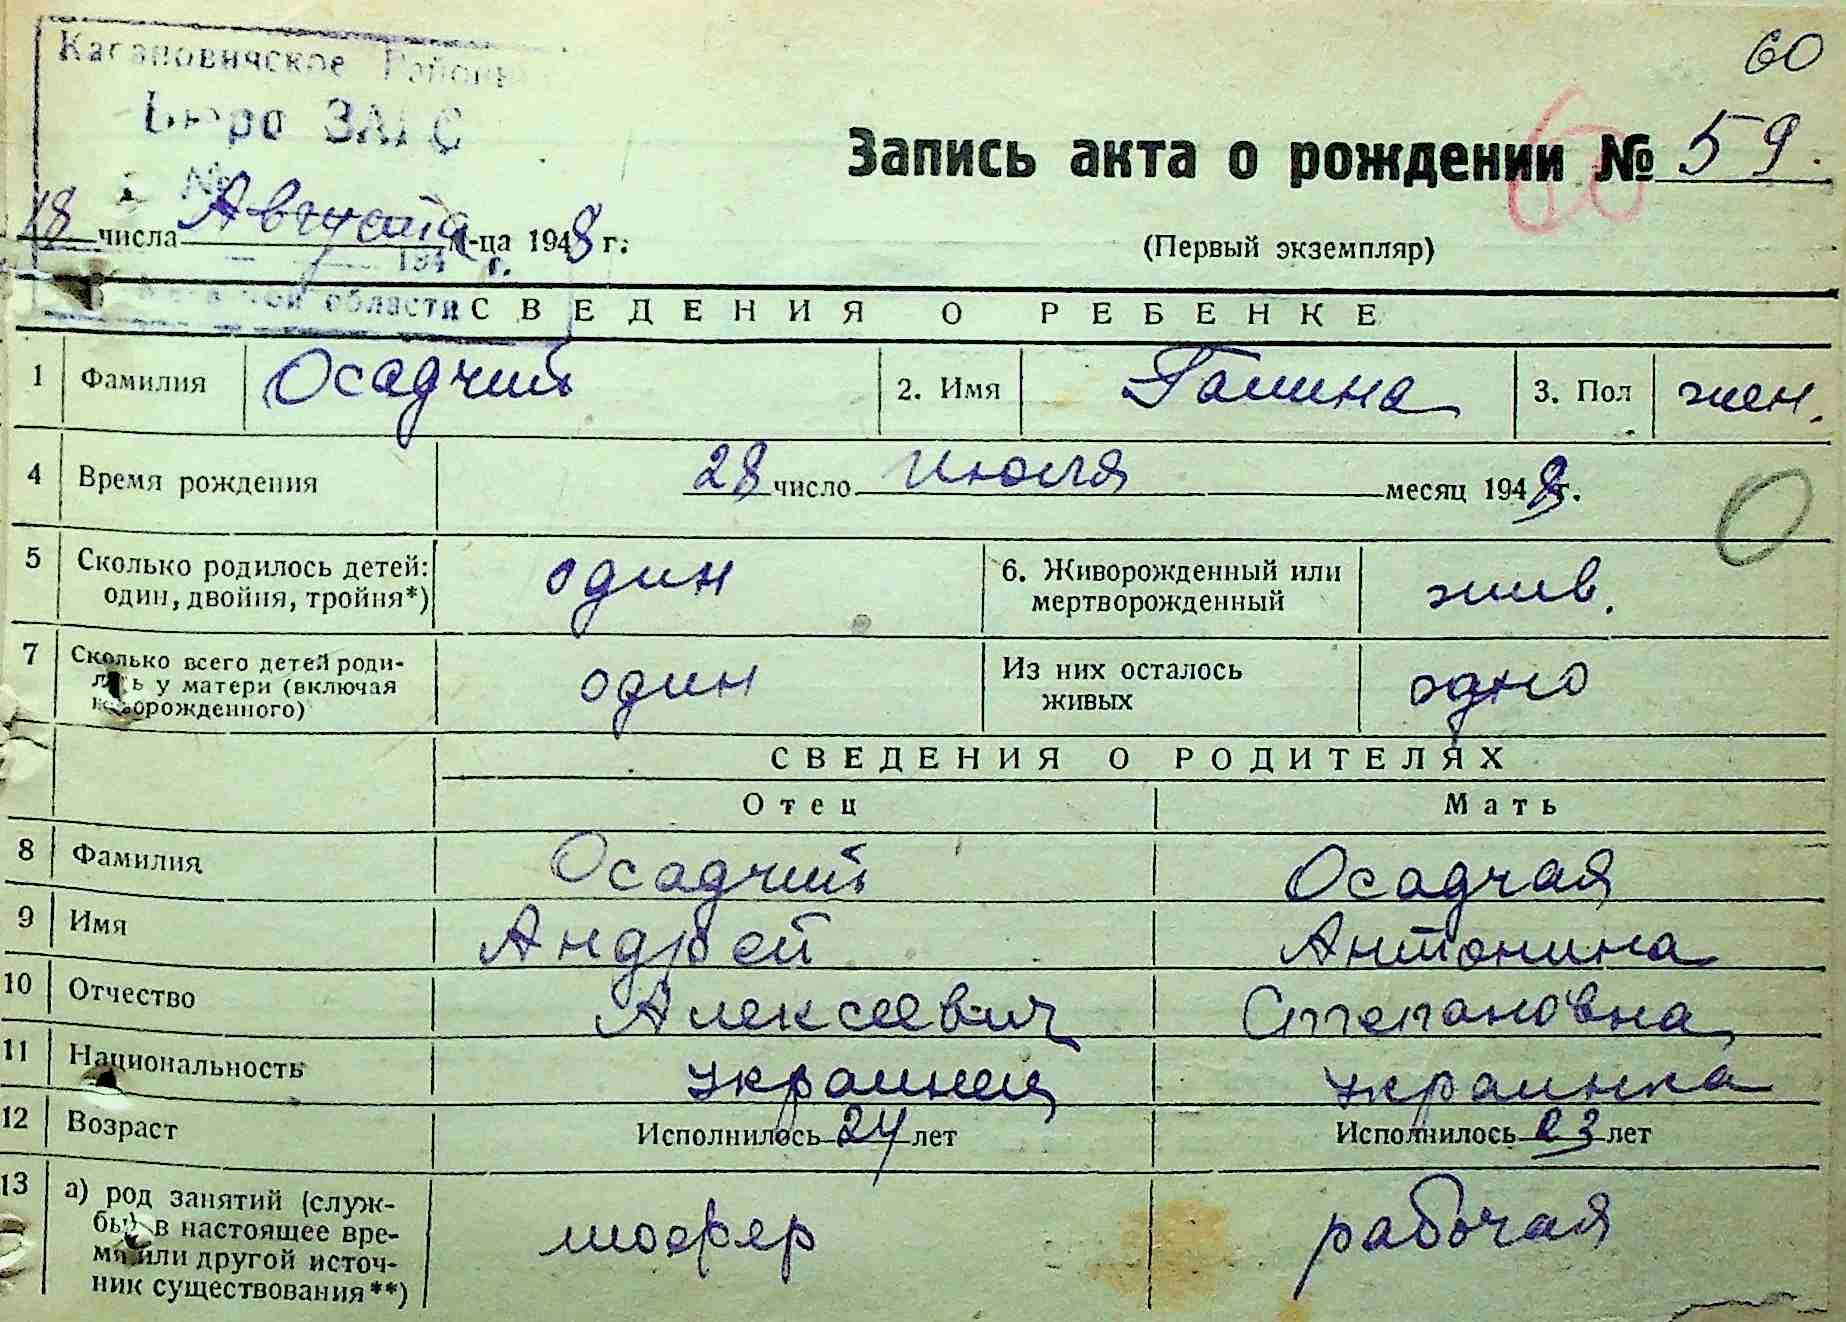 60
Районное
Бюро ЗАГС
№
Запись акта о рождении № 59.
60
18 числа Августа м-ца 1948 г.
(Первый экземпляр)
194 г.
области
СВЕДЕНИЯ О РЕБЕНКЕ
1 Фамилия Осадчий 2. Имя Галина 3. Пол жен.
4 Время рождения 28 число июля месяц 1948 г.
0
5 Сколько родилось детей: один 6. Живорожденный или жив.
один, двойня, тройня*) мертворожденный
7 Сколько всего детей роди- один Из них осталось одно
лось у матери (включая живых
новорожденного)
СВЕДЕНИЯ О РОДИТЕЛЯХ
Отец Мать
8 Фамилия Осадчий Осадчая
9 Имя Андрей Антонина
10 Отчество Алексеевич Степановна
11 Национальность украинец украинка
12 Возраст Исполнилось 24 лет Исполнилось 23 лет
13 а) род занятий (служ- шофер рабочая
бы) в настоящее вре-
мя или другой источ-
ник существования**)